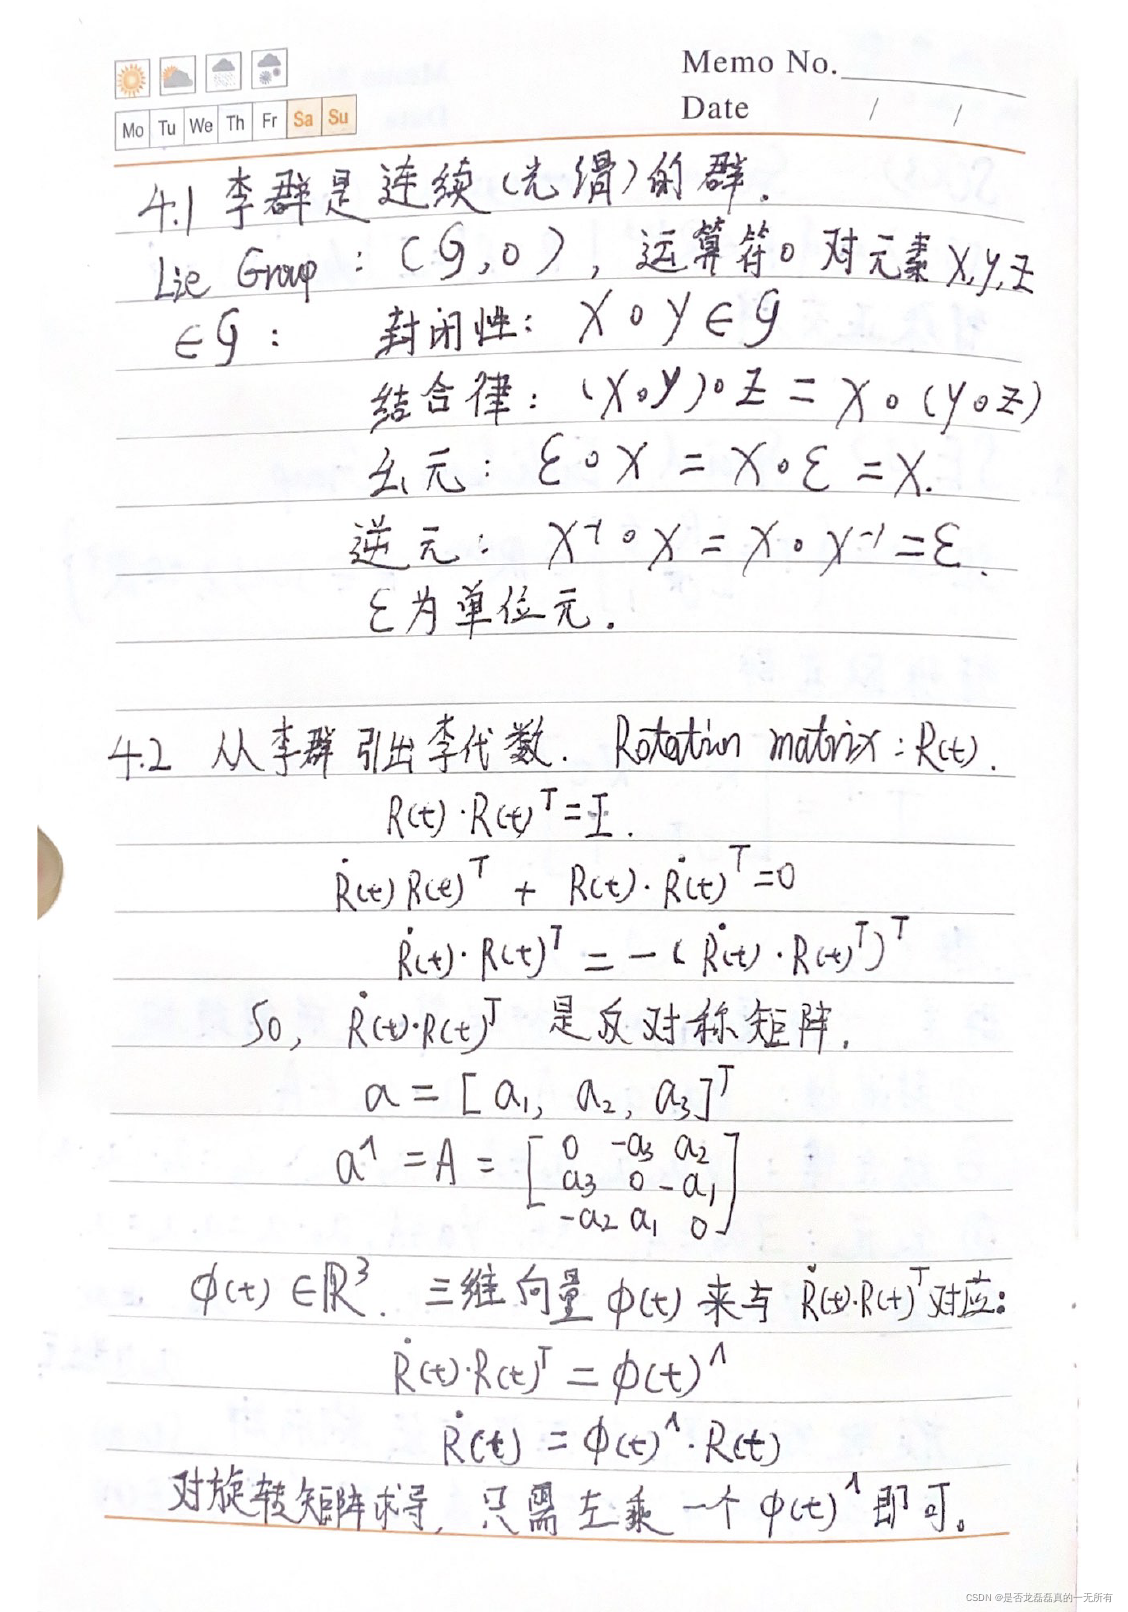 Memo No.
Date / /
Mo Tu We Th Fr Sa Su
4.1 李群是连续(光滑)的群.
Lie Group : (G,o) , 运算符o 对元素 X,Y,Z
∈G : 封闭性: X o Y ∈ G
结合律: (X o Y) o Z = X o (Y o Z)
幺元: ε o X = X o ε = X.
逆元: X⁻¹ o X = X o X⁻¹ = ε.
ε为单位元.
4.2 从李群引出李代数. Rotation matrix : R(t).
R(t)·R(t)ᵀ = I.
Ṙ(t) R(t)ᵀ + R(t)·Ṙ(t)ᵀ = 0
Ṙ(t)·R(t)ᵀ = -(Ṙ(t)·R(t)ᵀ)ᵀ
So, Ṙ(t)·R(t)ᵀ 是反对称矩阵.
a = [a₁, a₂, a₃]ᵀ
a^ = A = [ 0 -a₃ a₂
a₃ 0 -a₁
-a₂ a₁ 0 ]
φ(t) ∈ ℝ³. 三维向量 φ(t) 来与 Ṙ(t)·R(t)ᵀ 对应:
Ṙ(t)·R(t)ᵀ = φ(t)^
Ṙ(t) = φ(t)^·R(t)
对旋转矩阵求导, 只需左乘一个 φ(t)^ 即可。
CSDN @是否龙磊磊真的一无所有